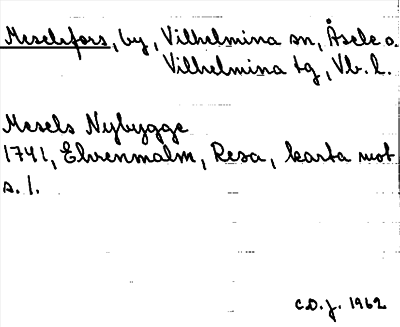 Meselefors, by, Vilhelmina sn, Åsele o.
Vilhelmina tg, Vb. l.
Mesels Nybygge
1741, Ehrenmalm, Resa, karta mot
s. 1.
C.D.J. 1962